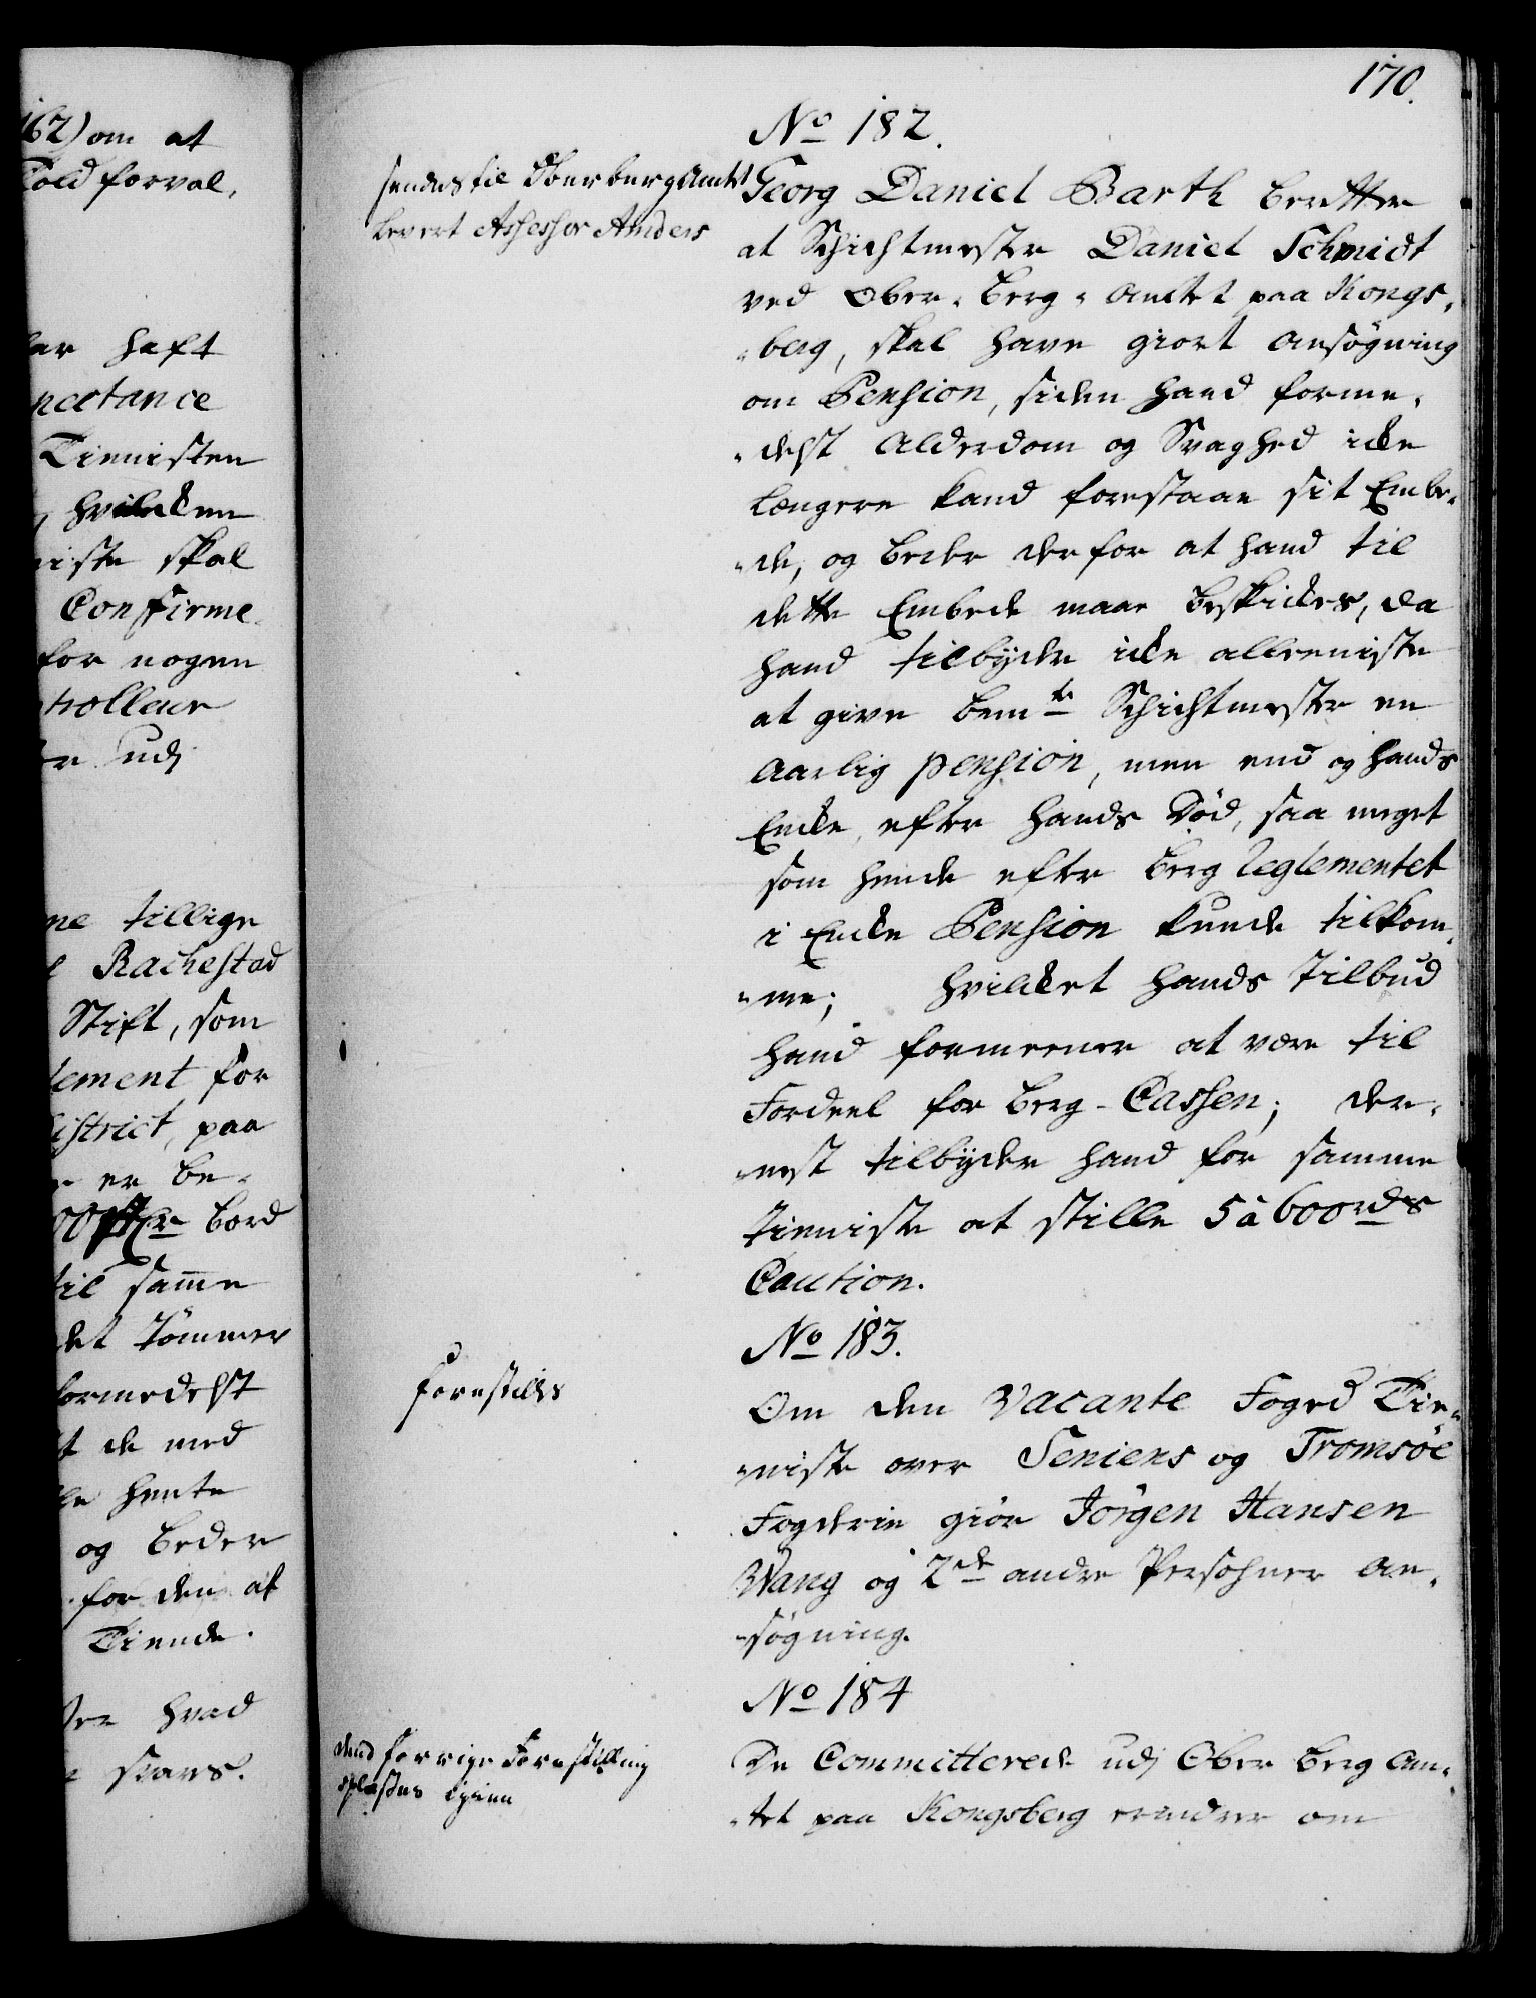 162) om at
Told forval,
har haft
pectance
Tienisten
, hvilcken
niste skal
Confirme
for nogen
trolleur
udj
ne tillige
Rachestad
Stift, som
lement for
istrict, paa
er be-
bord
til samme
det Tömmer
formedelst
t de med
hente
og beder
for den at
Tiende.
hvad
svares.
170.
No 182.
sendes til Oberbergamtet
levert Assessor Anders
Georg Daniel Barth beretter
at Schichtmester Daniel Schmidt
ved Ober-Berg-Amtet paa Kongs-
-berg, skal have giort Ansøgning
om Pension, siden hand forme-
-delst Alderdom og Svaghed icke
længere kand forestaae sit Embe-
-de, og beder derfor at hand til
dette Embede maae beskickes, da
hand tilbyder icke alleeniste
at give bemte Schichtmester en
Aarlig pension, men end og hands
Encke, efter hands Död, saa meget
som hende efter Berg Reglementet
i Encke Pension kunde tilkom-
-me; hvilcket hands Tilbud
hand formeener at være til
Fordeel for Berg-Cassen; der-
-nest tilbyder hand for samme
tieniste at stille 5 à 600 rds
Caution.
No 183.
forestilles
Om den Vacante Foged Tie-
-niste over Seniens og Tromsøe
Fogderie giör Jörgen Hansen
Wang og 2de andre Persohner An-
-søgning.
No 184
dend forrige Forestilling
igien
De Committerede udj Ober Berg Am-
-tet paa Kongsberg erindrer om